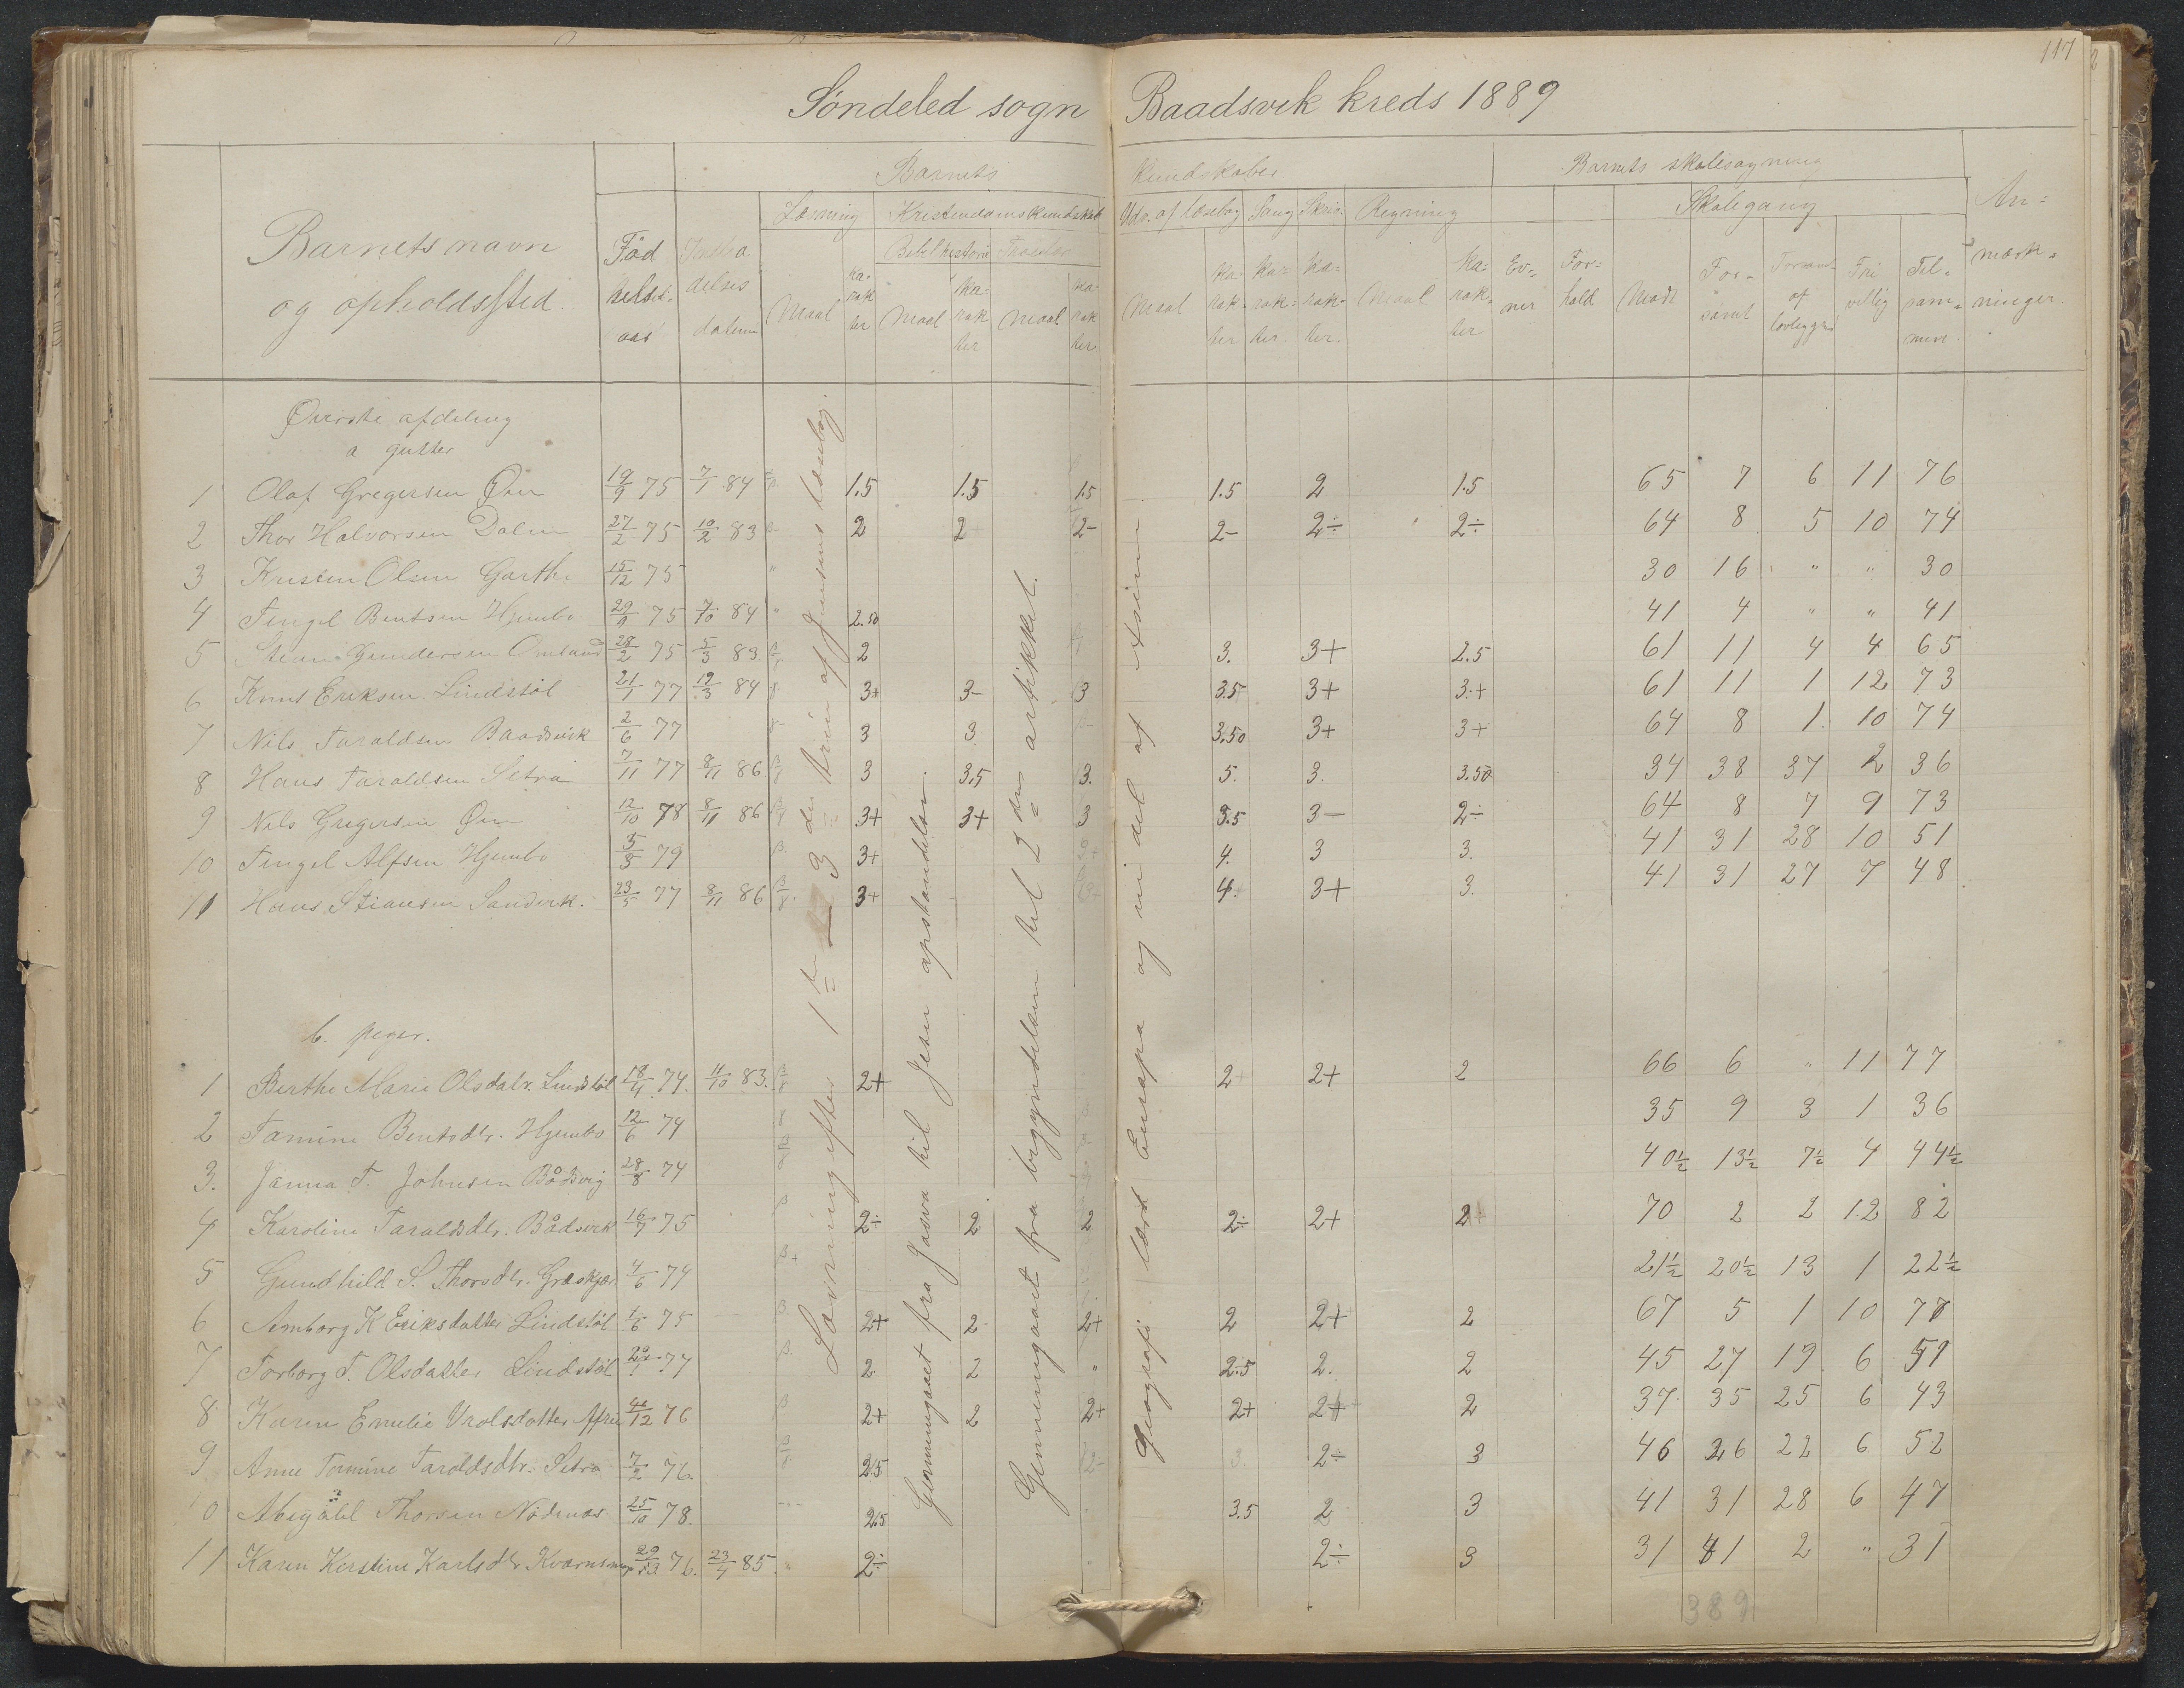 117
Søndeled sogn Baadsvik kreds 1889
Barnets kundskaber Barnets skolesøgning
Barnets navn og opholdssted.
Læsning Kristendomskundskab Udv. af læsebog Sang Skriv. Regning Skolegang An=
Bibelhistorie Troeslær
Maal Maal Maal Maal Maal Ev= ner For= hold Mødt For= sømt Forsømt af lovlig grund Fri villig Til= sam= men mærk= ninger.
Øverste afdeling
a gutter
1 Olaf Gregersen Øien 19/9 75 7/1 84 1.5 1.5 1.5 1.5 2 1.5 65 7 6 11 76
2 Thor Halvorsen Dalen 27/2 75 10/2 83 2 2 2- 2- 2÷ 2÷ 64 8 5 10 74
3 Kristen Olsen Garthe 15/12 75 " 30 16 " " 30
4 Tengel Bentsen Hjembo 29/9 75 7/10 84 " 2.50 41 4 " " 41
5 Stian Gundersen Omland 28/2 75 5/3 83 2 3. 3+ 2.5 61 11 4 4 65
6 Knut Eriksen Lindstøl 21/1 77 19/3 84 3+ 3- 3 3.5 3+ 3.+ 61 11 1 12 73
7 Nils Taraldsen Baadsvik 2/6 77 3 3 3.50 3+ 3+ 64 8 1 10 74
8 Hans Taraldsen Setra 7/11 77 8/11 86 3 3,5 3. 5. 3. 3.50 34 38 37 2 36
9 Nils Gregersen Øien 12/10 78 8/11 86 3+ 3+ 3 3.5 3- 2÷ 64 8 7 9 73
10 Tengel Alfsen Hjembo 5/3 79 3+ 4. 3 3. 41 31 28 10 51
11 Hans Stiansen Sandvik. 23/5 77 8/11 86 3+ 4. 3+ 3. 41 31 27 7 48
b. piger.
1 Berthe Marie Olsdatr. Lindstøl 18/4 74. 11/10 83. 2+ 2 2+ 2 66 6 " 11 77
2 Tomine Bentsdtr. Hjembo 12/6 74 35 9 3 1 36
3. Janna T. Johnsen Bådsvig 28/8 74 40½ 13½ 7½ 4 44½
4 Karoline Taraldsdtr. Bådsvik 16/7 75 2÷ 2 2 2÷ 2+ 2 70 2 2 12 82
5 Gundhild S. Thorsdtr. Græskjær 4/6 74 21½ 20½ 13 1 22½
6 Amborg K Eriksdatter Lindstøl 1/6 75 2+ 2- 2+ 2 2+ 2 67 5 1 10 77
7 Torborg T. Olsdatter Lindstøl 77 2 2 " 2.5 2. 2 45 27 19 6 51
8 Karen Emilie 76 2+ 2 2+ 2+ 2+ 2 37 35 25 6 43
9 Anne Tomine Taroldsdtr. Setra 7/2 76. 2.5 2- 3. 2÷ 3 46 26 22 6 52
10 Abigael Thorsen Nødenes 25/10 78. 2.5 3.5 2 3 41 31 28 6 47
11 Karen Kirstine Karlsdtr 76. 23/4 85. " 2÷ " 2÷ 3 31 41 2 " 31
389
Læsning efter 1ste 2 3die trin af Jensens læsebog.
Gjennemgaaet fra Josva til Jesu opstandelse.
Gjennemgaaet fra begyndelsen til 2den artikkel.
Geografi. lært Europa og en del af Asien.